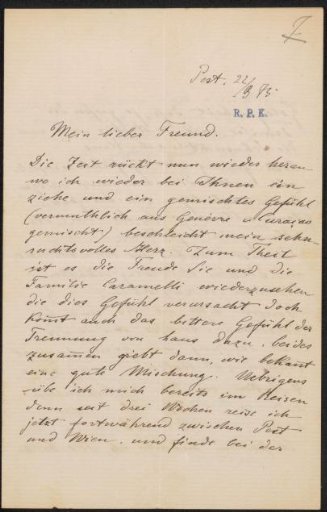 7
Pest. 22/9 75
R. P. K.
Mein lieber Freund.
Die Zeit rückt nun wieder heran
wo ich wieder bei Ihnen ein
ziehe und ein gemischtes Gefühl
(vermuthlich aus Genèvre u Curaçao
gemischt) beschleicht mein sehn
suchtsvolles Herz. Zum Theil
ist es die Freude Sie und die
Familie Caramelli wiederzusehen
die dies Gefühl verursacht doch
komt auch das bittere Gefühl der
Trennung von haus dazu. beides
zusamen giebt dann, wie bekant
eine gute Mischung. Uebrigens
übe ich mich bereits im Reisen
denn seit drei Wochen reise ich
jetzt fortwährend zwischen Pest
und Wien. und finde bei der